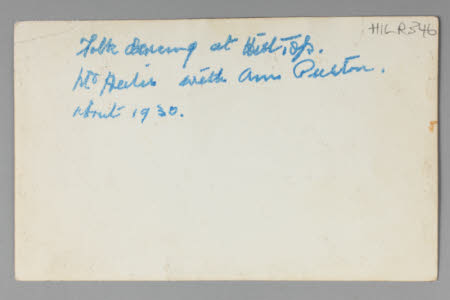 HIL.R.546
Folk Dancing at Hill Top.
Mr Heelis with Ann Preston.
About 1930.